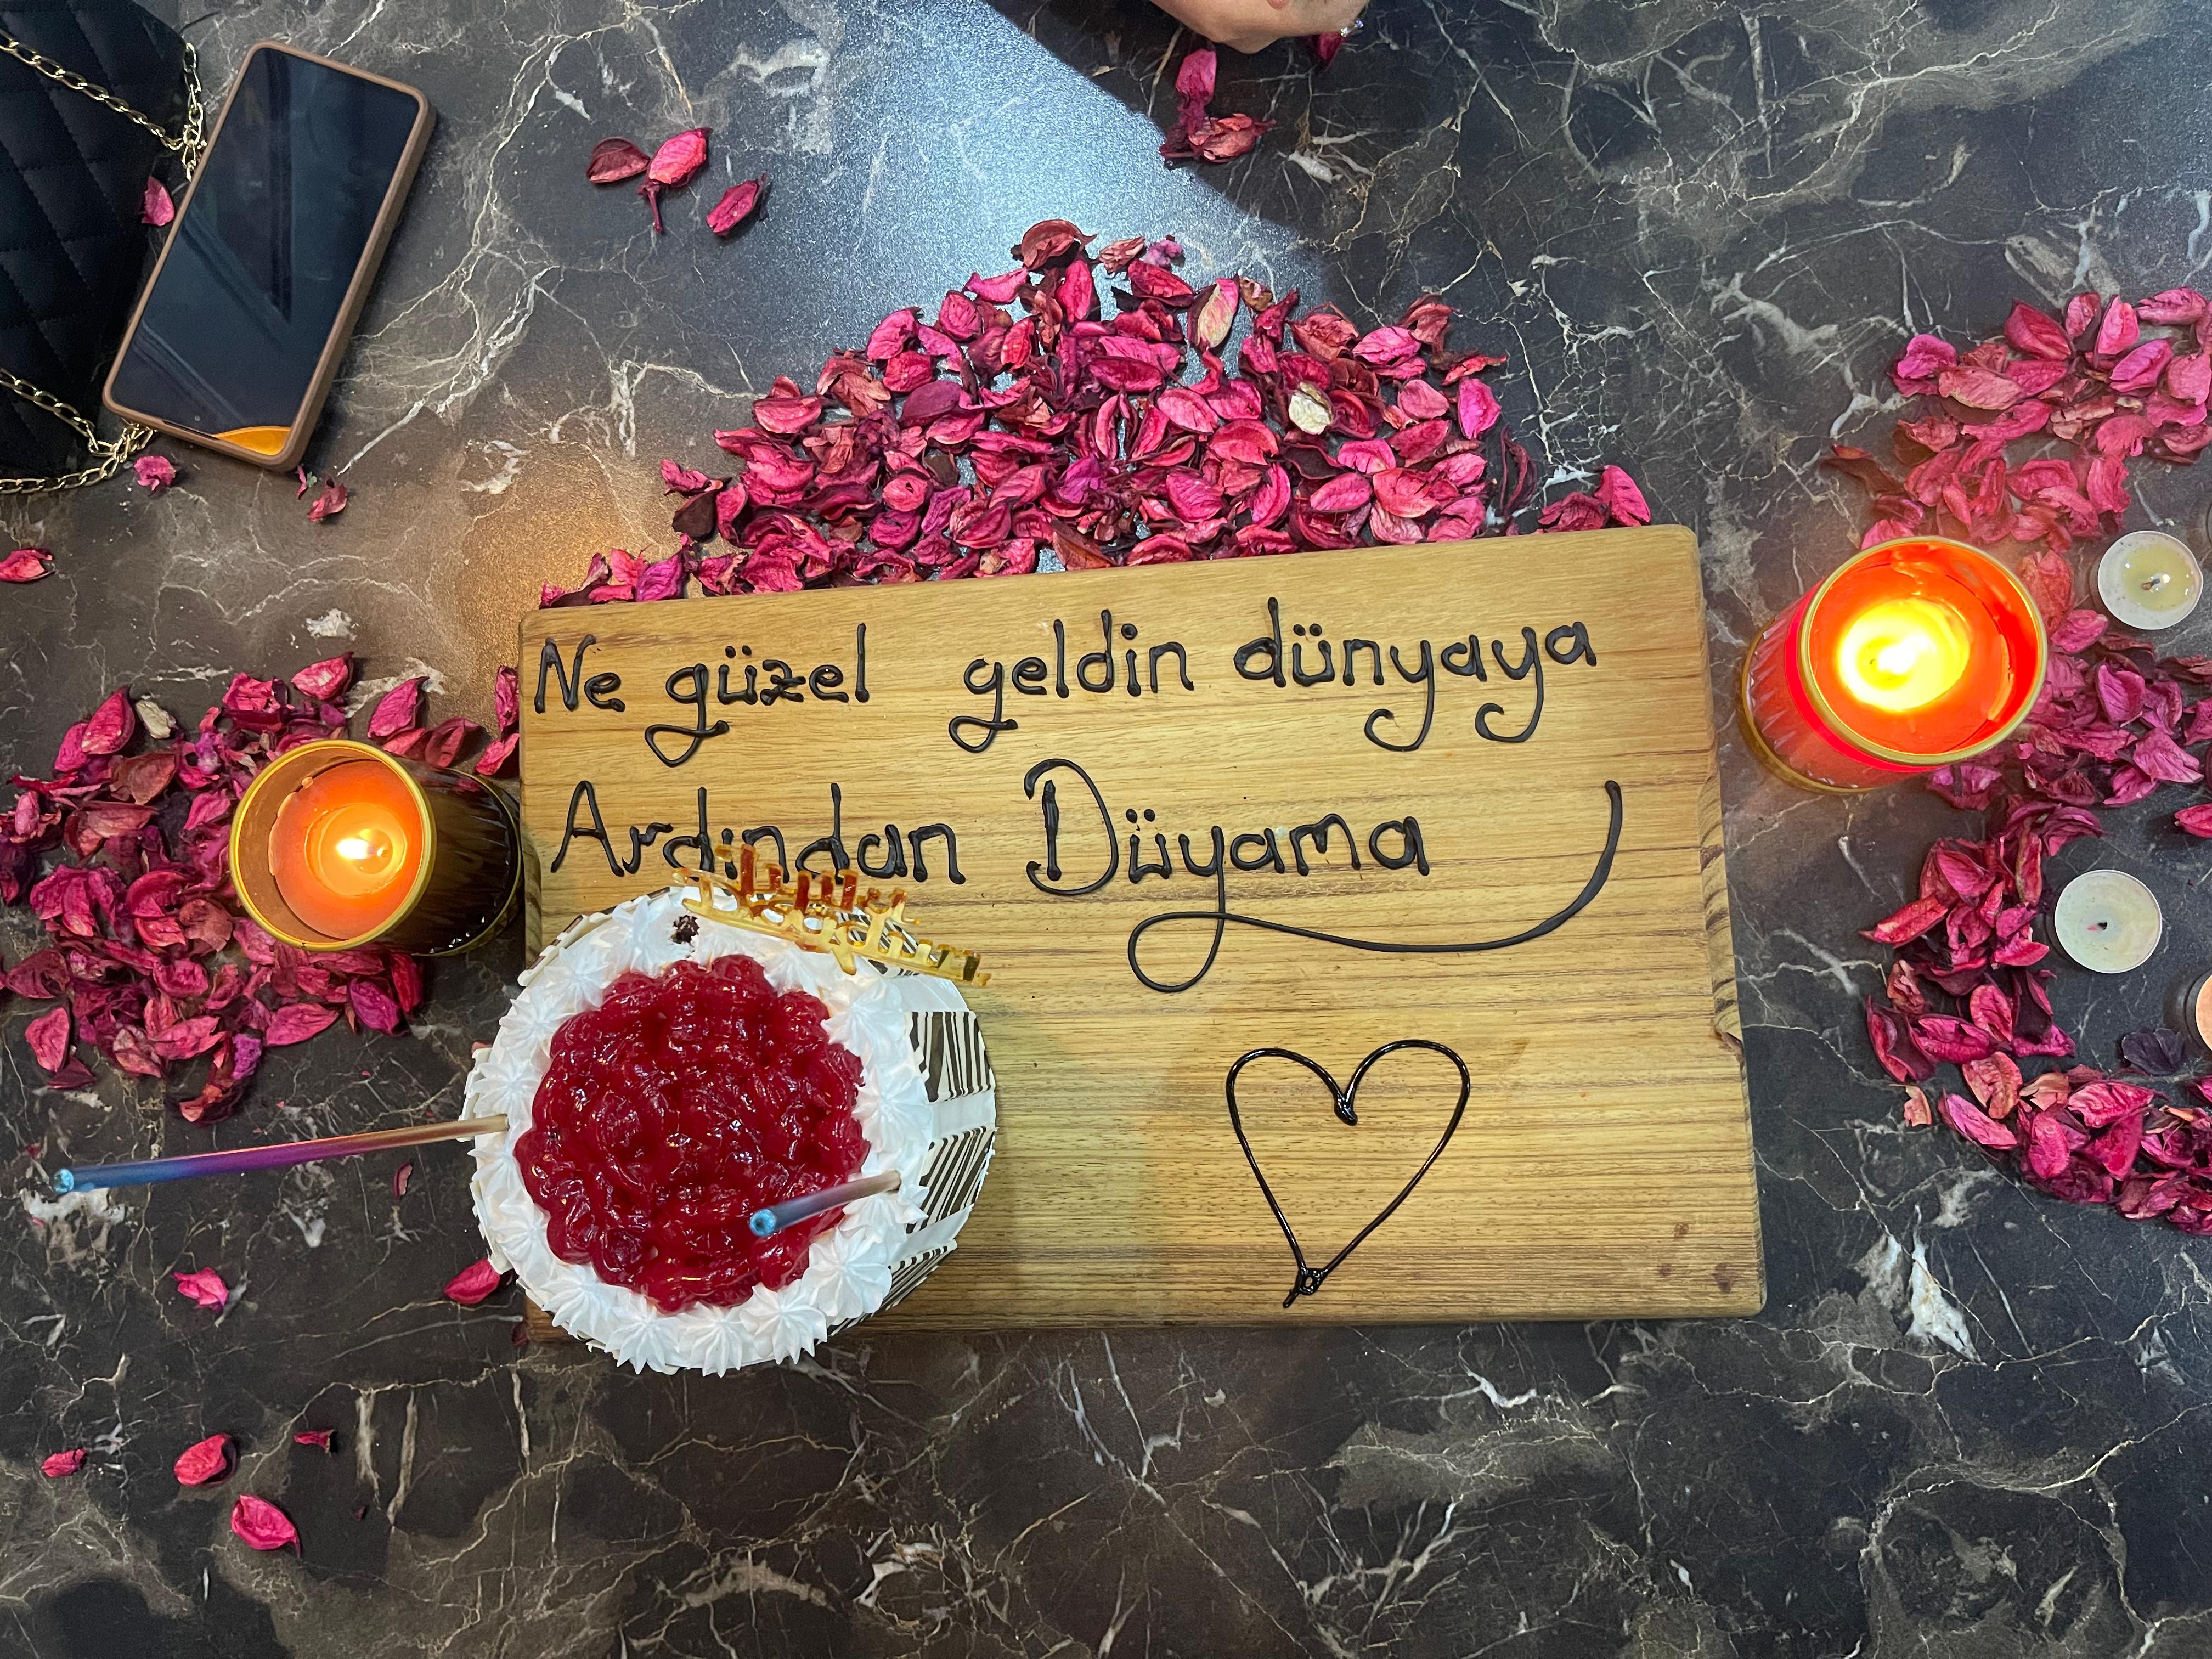 Ne güzel geldin dünyaya
Ardından Düyama